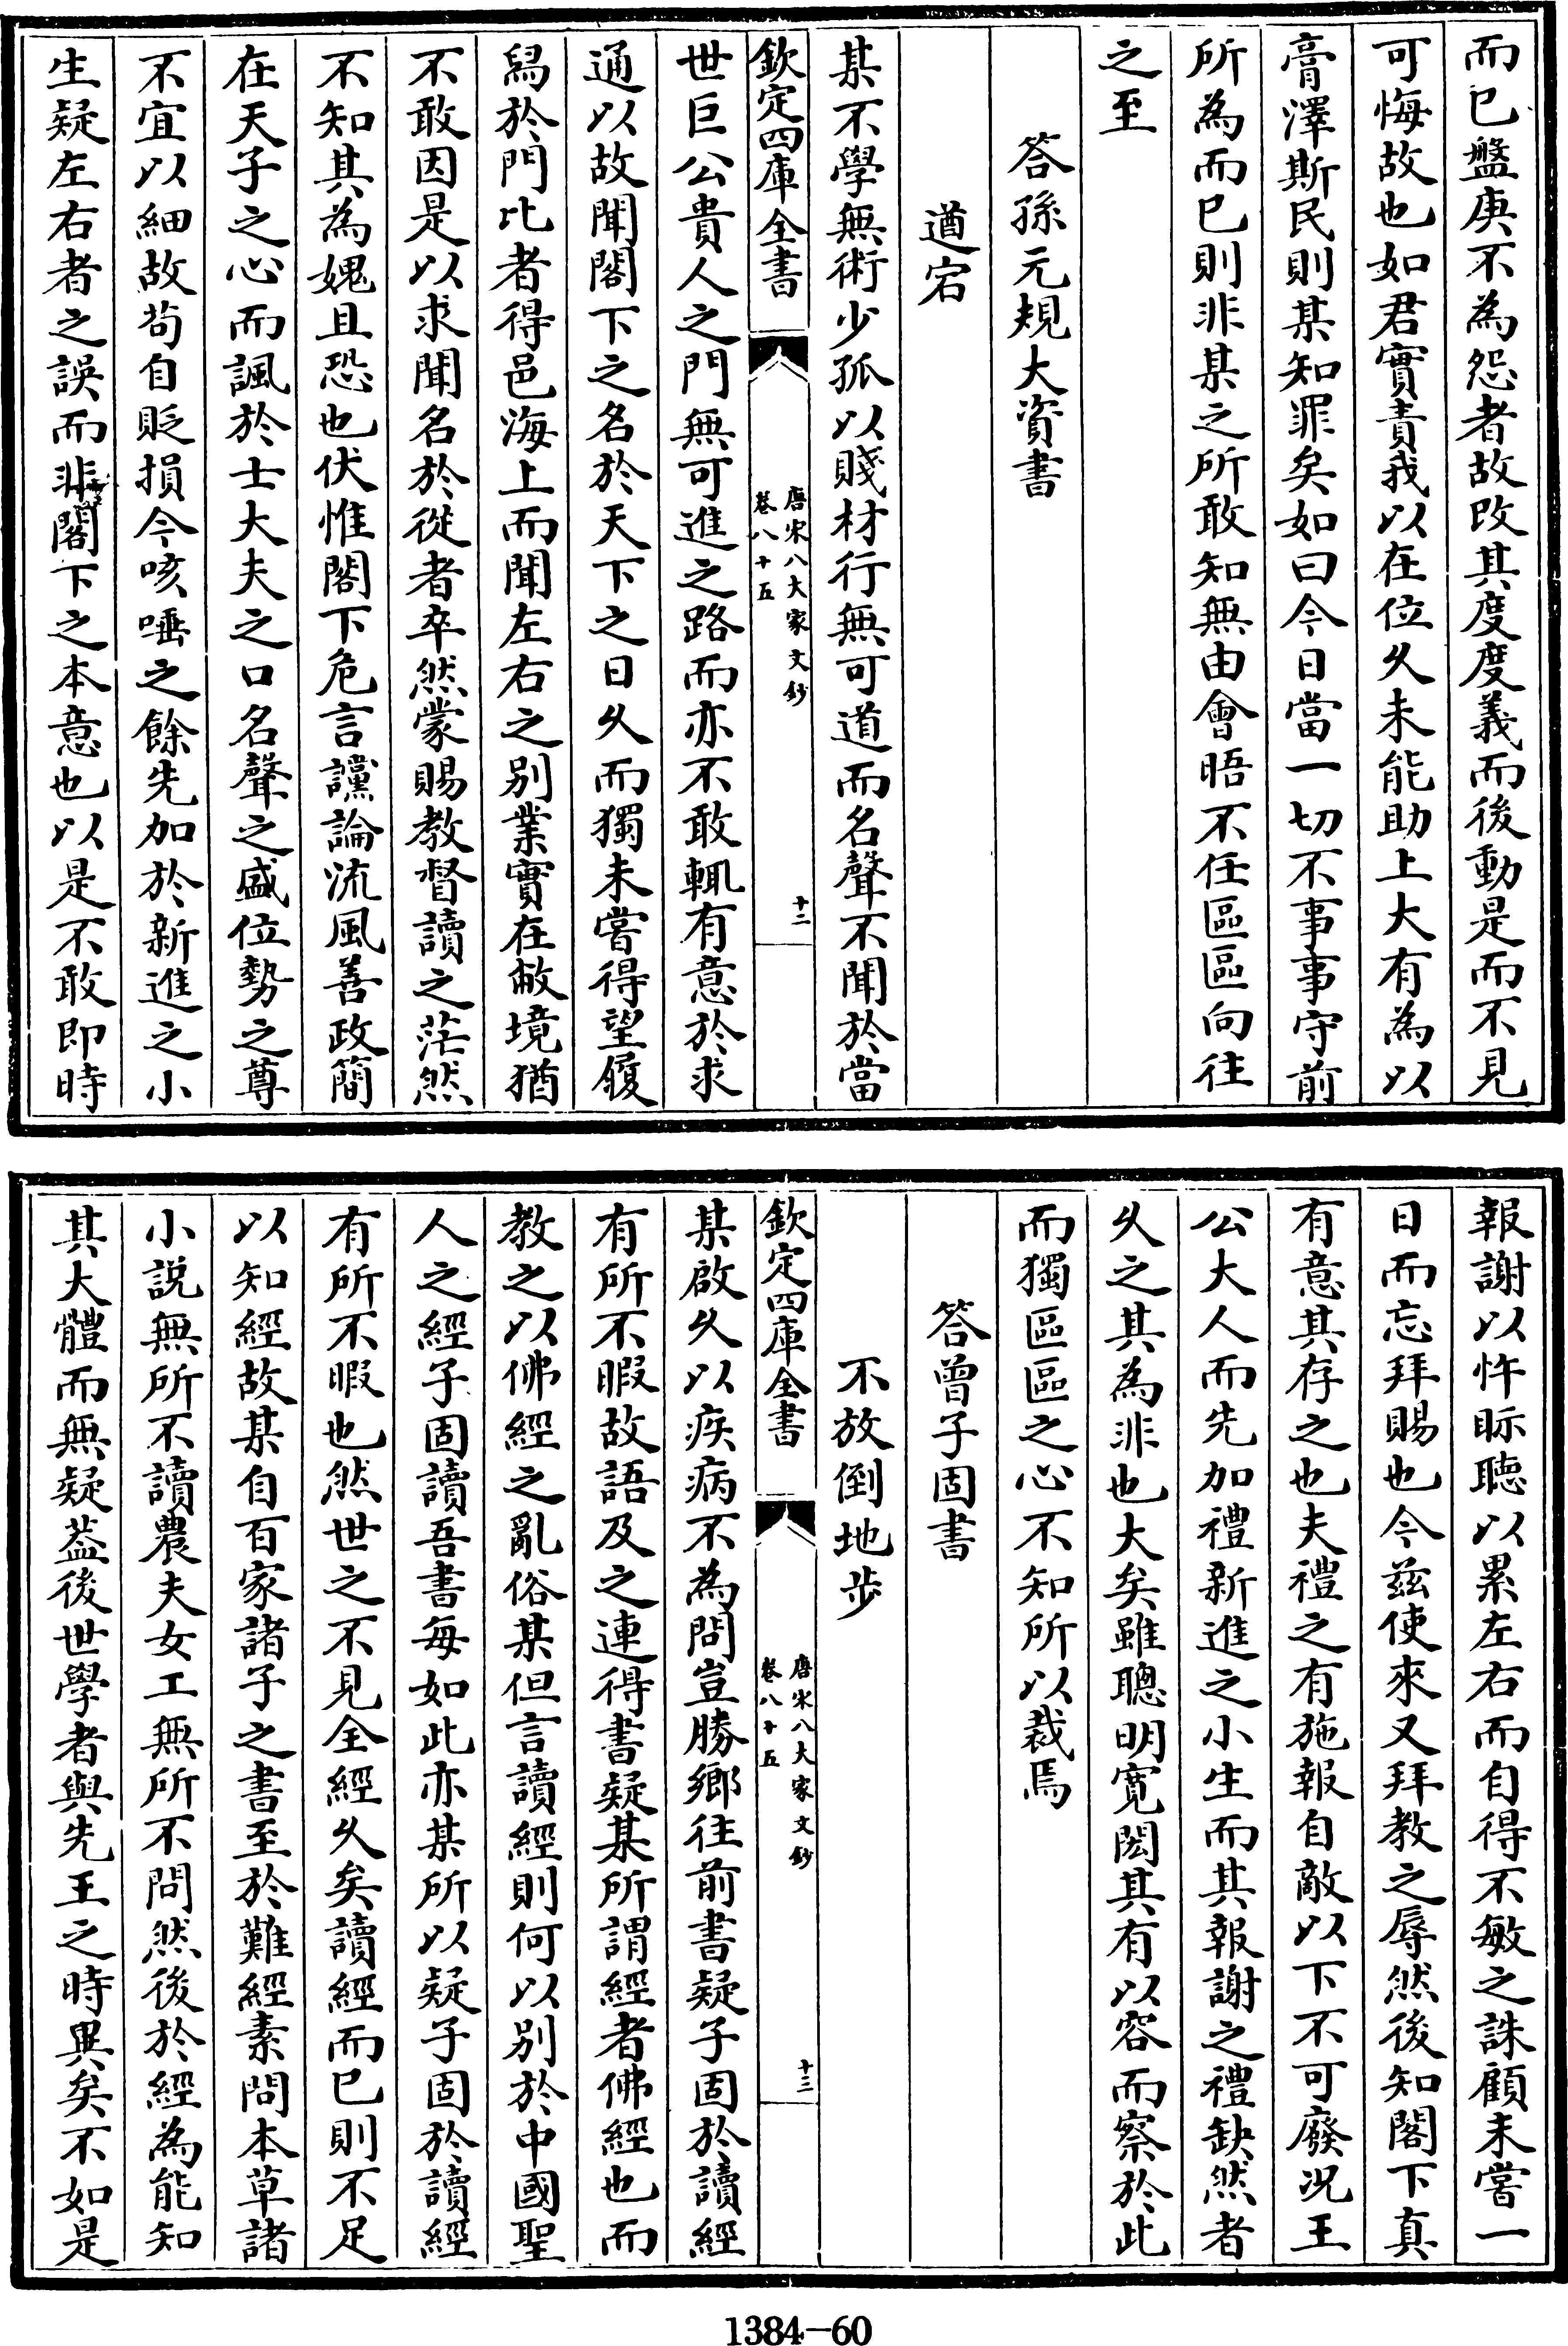 而已盤庚不為怨者故改其度度義而後動是而不見
可悔故也如君實責我以在位久未能助上大有為以
膏澤斯民則某知罪矣如曰今日當一切不事事守前
所為而已則非某之所敢知無由會晤不任區區向往
之至
答孫元規大資書
遒宕
某不學無術少孤以賤材行無可道而名聲不聞於當
欽定四庫全書
唐宋八大家文鈔
卷八十五
十二
世巨公貴人之門無可進之路而亦不敢輒有意於求
通以故聞閣下之名於天下之日久而獨未嘗得望履
舄於門比者得邑海上而聞左右之别業實在敝境猶
不敢因是以求聞名於從者卒然蒙賜教督讀之茫然
不知其為媿且恐也伏惟閣下危言讜論流風善政簡
在天子之心而諷於士大夫之口名聲之盛位勢之尊
不宜以細故茍自貶損今咳唾之餘先加於新進之小
生疑左右者之誤而非閣下之本意也以是不敢即時
報謝以忤眎聽以累左右而自得不敏之誅顧未嘗一
日而忘拜賜也今兹使來又拜教之辱然後知閣下真
有意其存之也夫禮之有施報自敵以下不可廢况王
公大人而先加禮新進之小生而其報謝之禮缺然者
久之其為非也大矣雖聰明寛閎其有以容而察於此
而獨區區之心不知所以裁焉
答曾子固書
不放倒地步
欽定四庫全書
唐宋八大家文鈔
卷八十五
十三
某啟久以疾病不為問豈勝鄉往前書疑子固於讀經
有所不暇故語及之連得書疑某所謂經者佛經也而
教之以佛經之亂俗某但言讀經則何以别於中國聖
人之經子固讀吾書每如此亦某所以疑子固於讀經
有所不暇也然世之不見全經久矣讀經而已則不足
以知經故某自百家諸子之書至於難經素問本草諸
小説無所不讀農夫女工無所不問然後於經為能知
其大體而無疑蓋後世學者與先王之時異矣不如是
1384—60